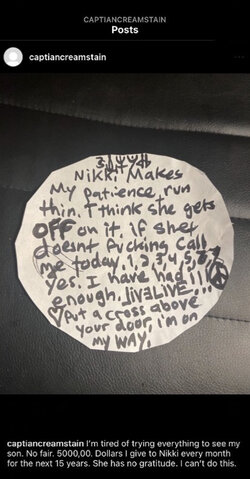 CAPTIANCREAMSTAIN
Posts
captiancreamstain
Nikki Makes
My patience run
thin. I think she gets
OFF on it. if she
doesnt fucking call
me today. 1, 2, 3, 4, 5, 6,
yes. I have had
enough. LIVELIVE...
Put a cross above
your door, i'm on
my way.
captiancreamstain I'm tired of trying everything to see my
son. No fair. 5000,00. Dollars I give to Nikki every month
for the next 15 years. She has no gratitude. I can't do this.